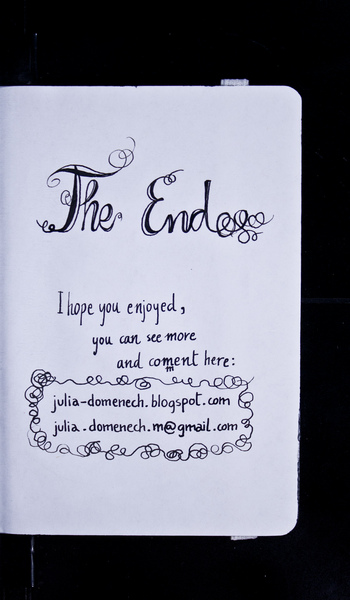 The End
I hope you enjoyed,
you can see more
and coment here:
m
julia-domenech.blogspot.com
julia.domenech.m@gmail.com